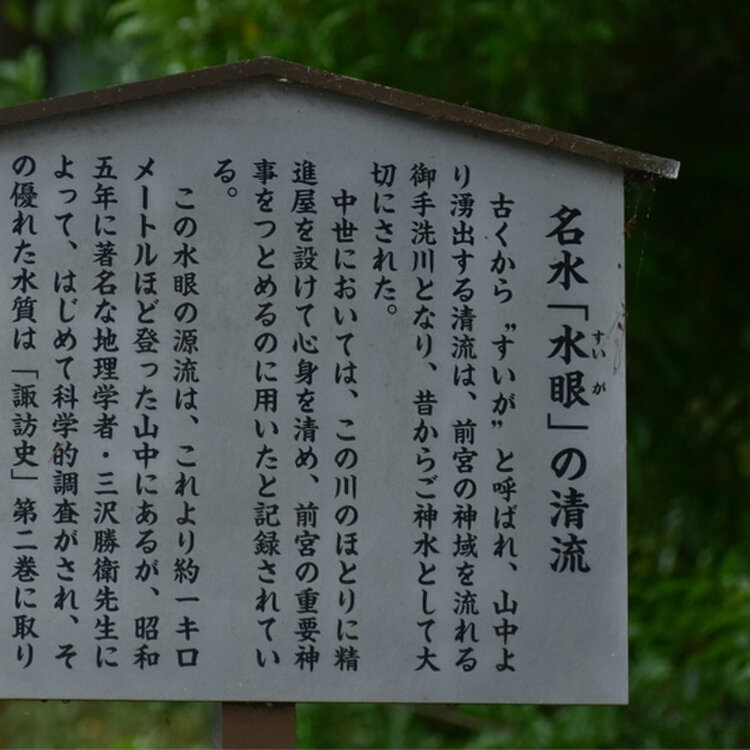 名水「水眼」の清流
すいが
古くから〝すいが〟と呼ばれ、山中よ
り湧出する清流は、前宮の神域を流れる
御手洗川となり、昔からご神水として大
切にされた。
中世においては、この川のほとりに精
進屋を設けて心身を清め、前宮の重要神
事をつとめるのに用いたと記録されてい
る。
この水眼の源流は、これより約一キロ
メートルほど登った山中にあるが、昭和
五年に著名な地理学者・三沢勝衛先生に
よって、はじめて科学的調査がされ、そ
の優れた水質は「諏訪史」第二巻に取り